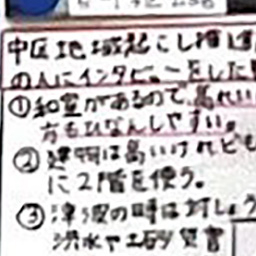 中区地域起こし推進
の人にインタビューをした
①和室があるので、高れい
方もひなんしやすい。
②建物は高いけれども
に2階を使う。
③津波の時は対しょう
洪水や土砂災害